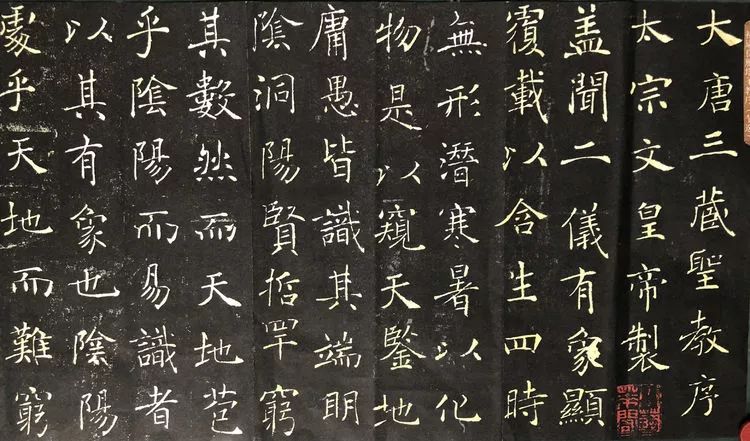 大唐三藏聖教序
太宗文皇帝製
盖聞二儀有象顯
覆載以含生四時
無形潛寒暑以化
物是以窺天鑒地
庸愚皆識其端明
陰洞陽賢哲罕窮
其數然而天地苞
乎陰陽而易識者
以其有象也陰陽
處乎天地而難窮